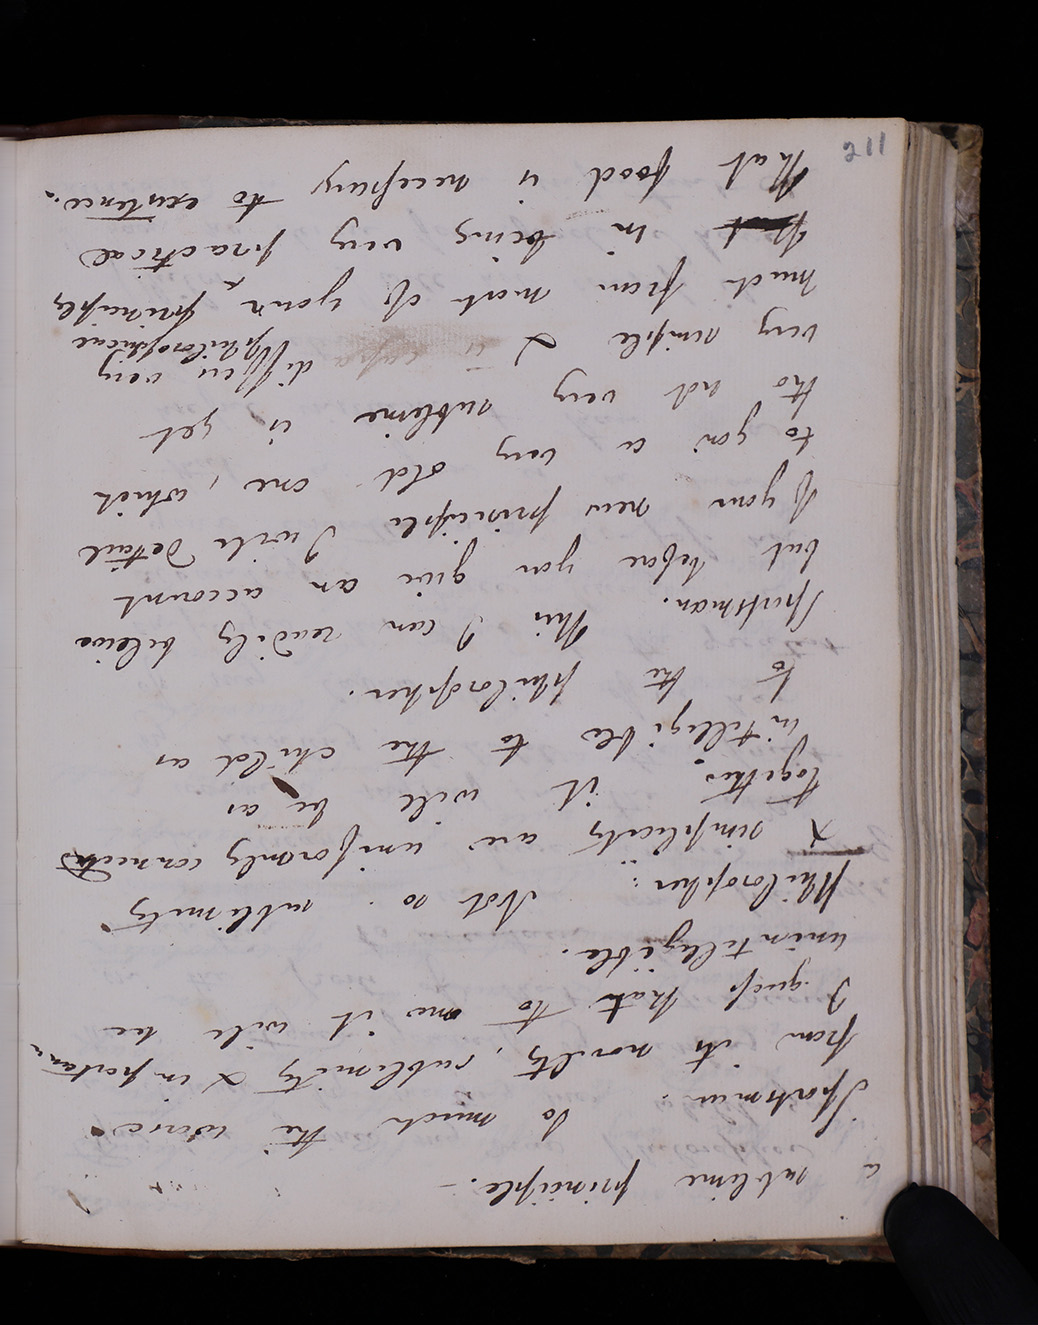 a sublime principle. —
Sportsman: So much the worse
from its novelty, sublimity & importance
I guess that to me it will be
unintelligible.
Philosopher: Not so: sublimity
& simplicity are uniformly connected
together. it will be as
intelligible to the child as
to the philosopher.
Sportsman. This I can readily believe
but before you give an account
of your new principle I will detail
to you a very old one, which
tho not very sublime is yet
very simple & differs very
philosophical
much from most of your principles
in being very practical
that food is necessary to existence.
211